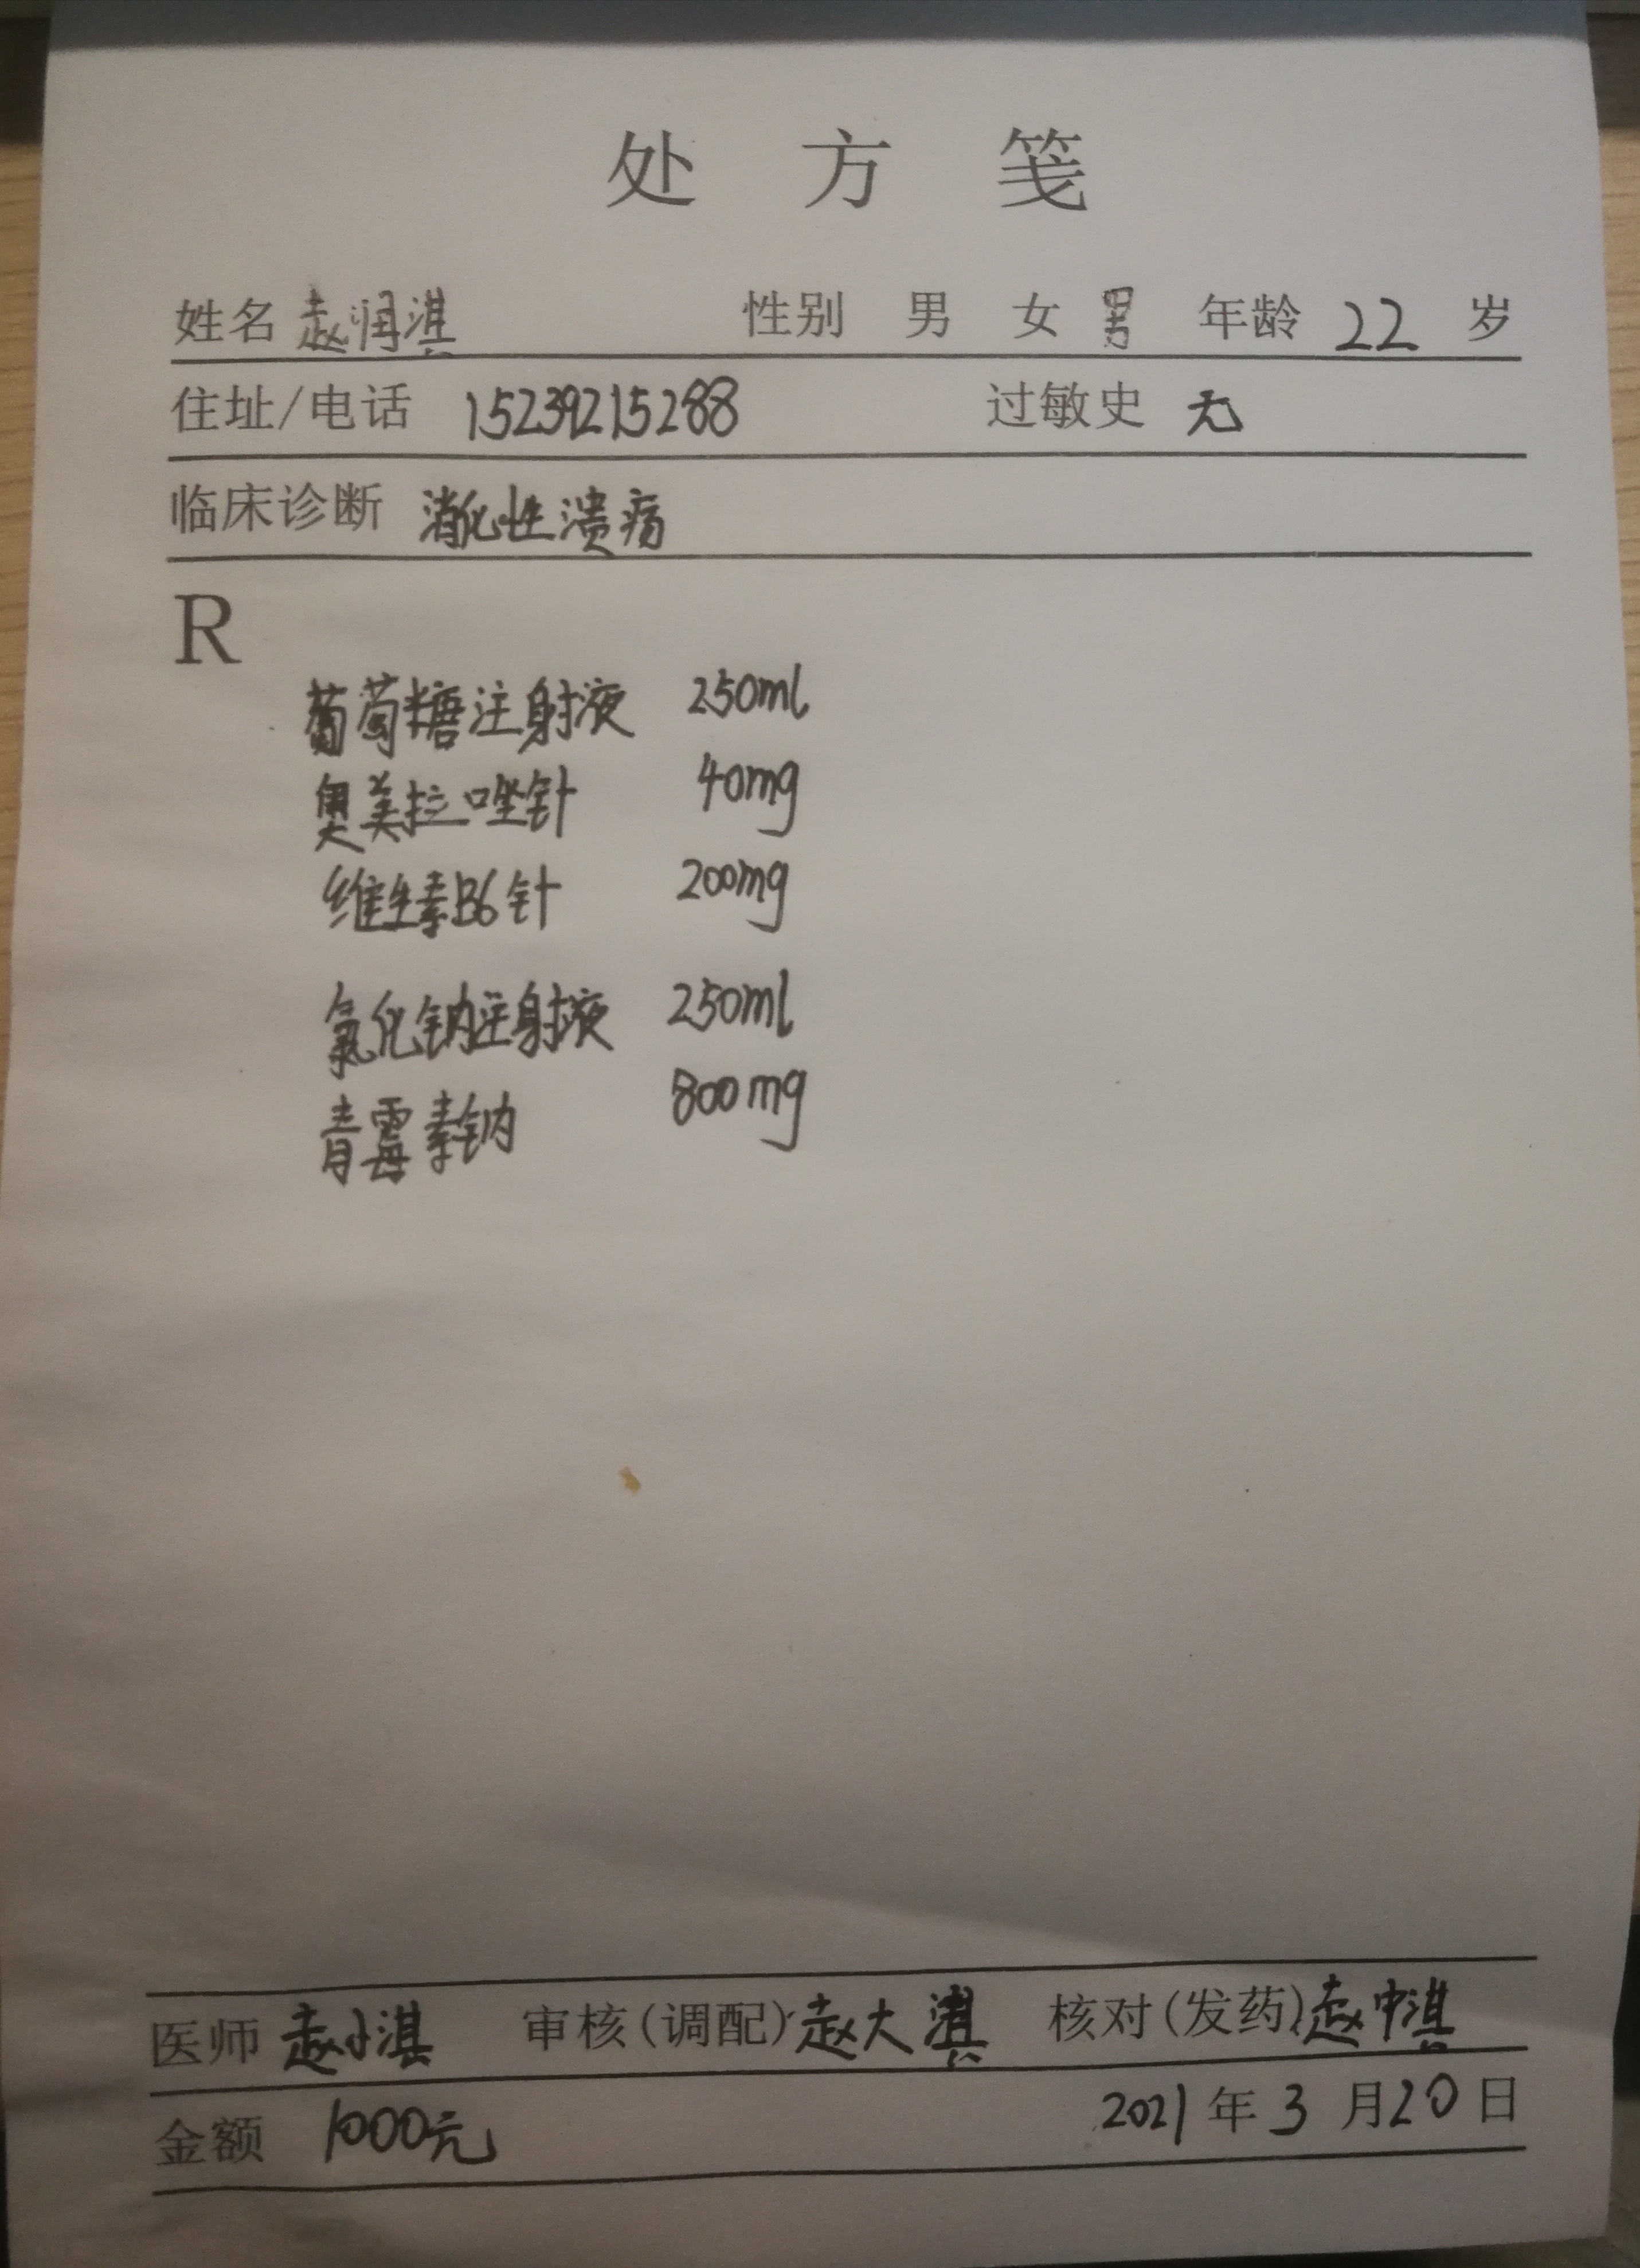 处方笺
姓名 赵润淇 性别 男 女 男 年龄 22 岁
住址/电话 15239215288 过敏史 无
临床诊断 消化性溃疡
R
葡萄糖注射液 250ml
奥美拉唑针 40mg
维生素B6针 200mg
氯化钠注射液 250ml
青霉素钠 800mg
医师 赵小淇 审核(调配) 赵大淇 核对(发药) 赵中淇
金额 1000元 2021 年 3 月 20 日